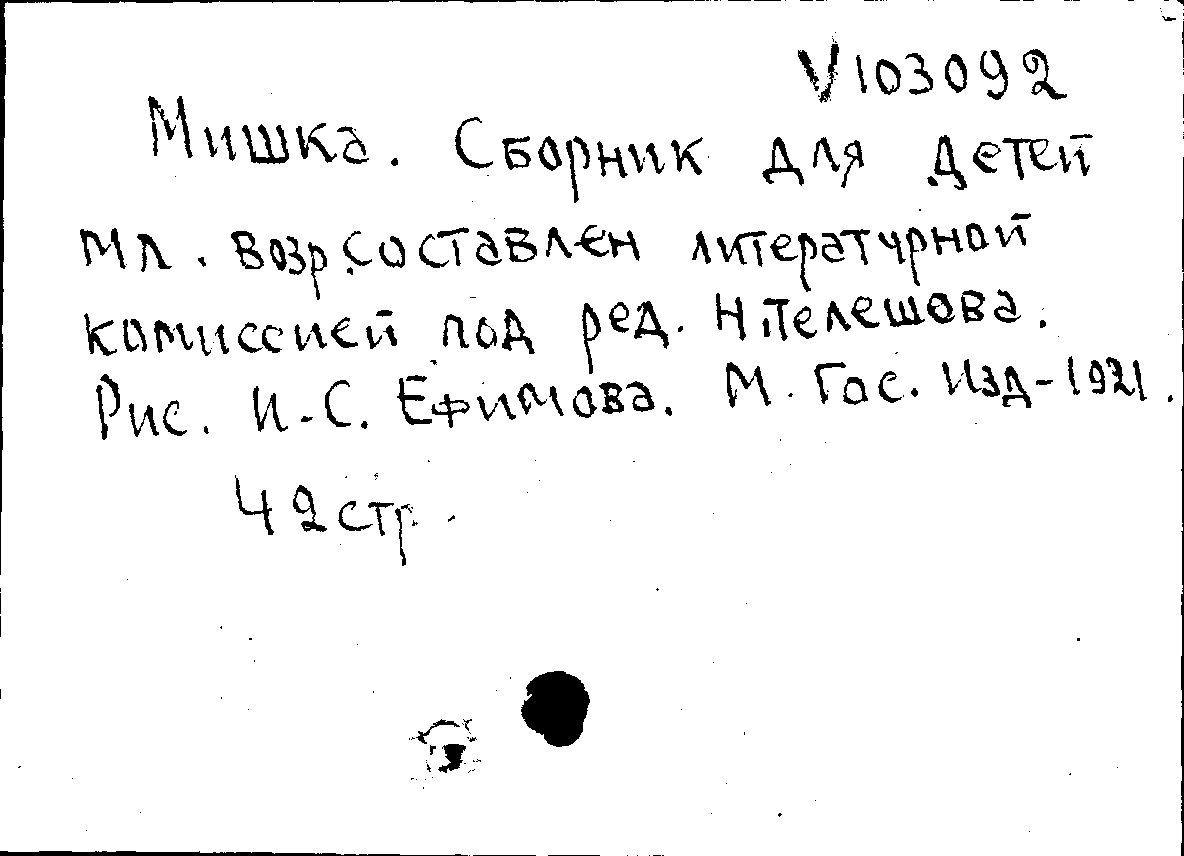 V103092
Мишка. Сборник для детей
мл. возр. составлен литературной
комиссией под ред. Н.Телешова.
Рис. И.С. Ефимова. М. Гос. Изд-1921.
42стр.